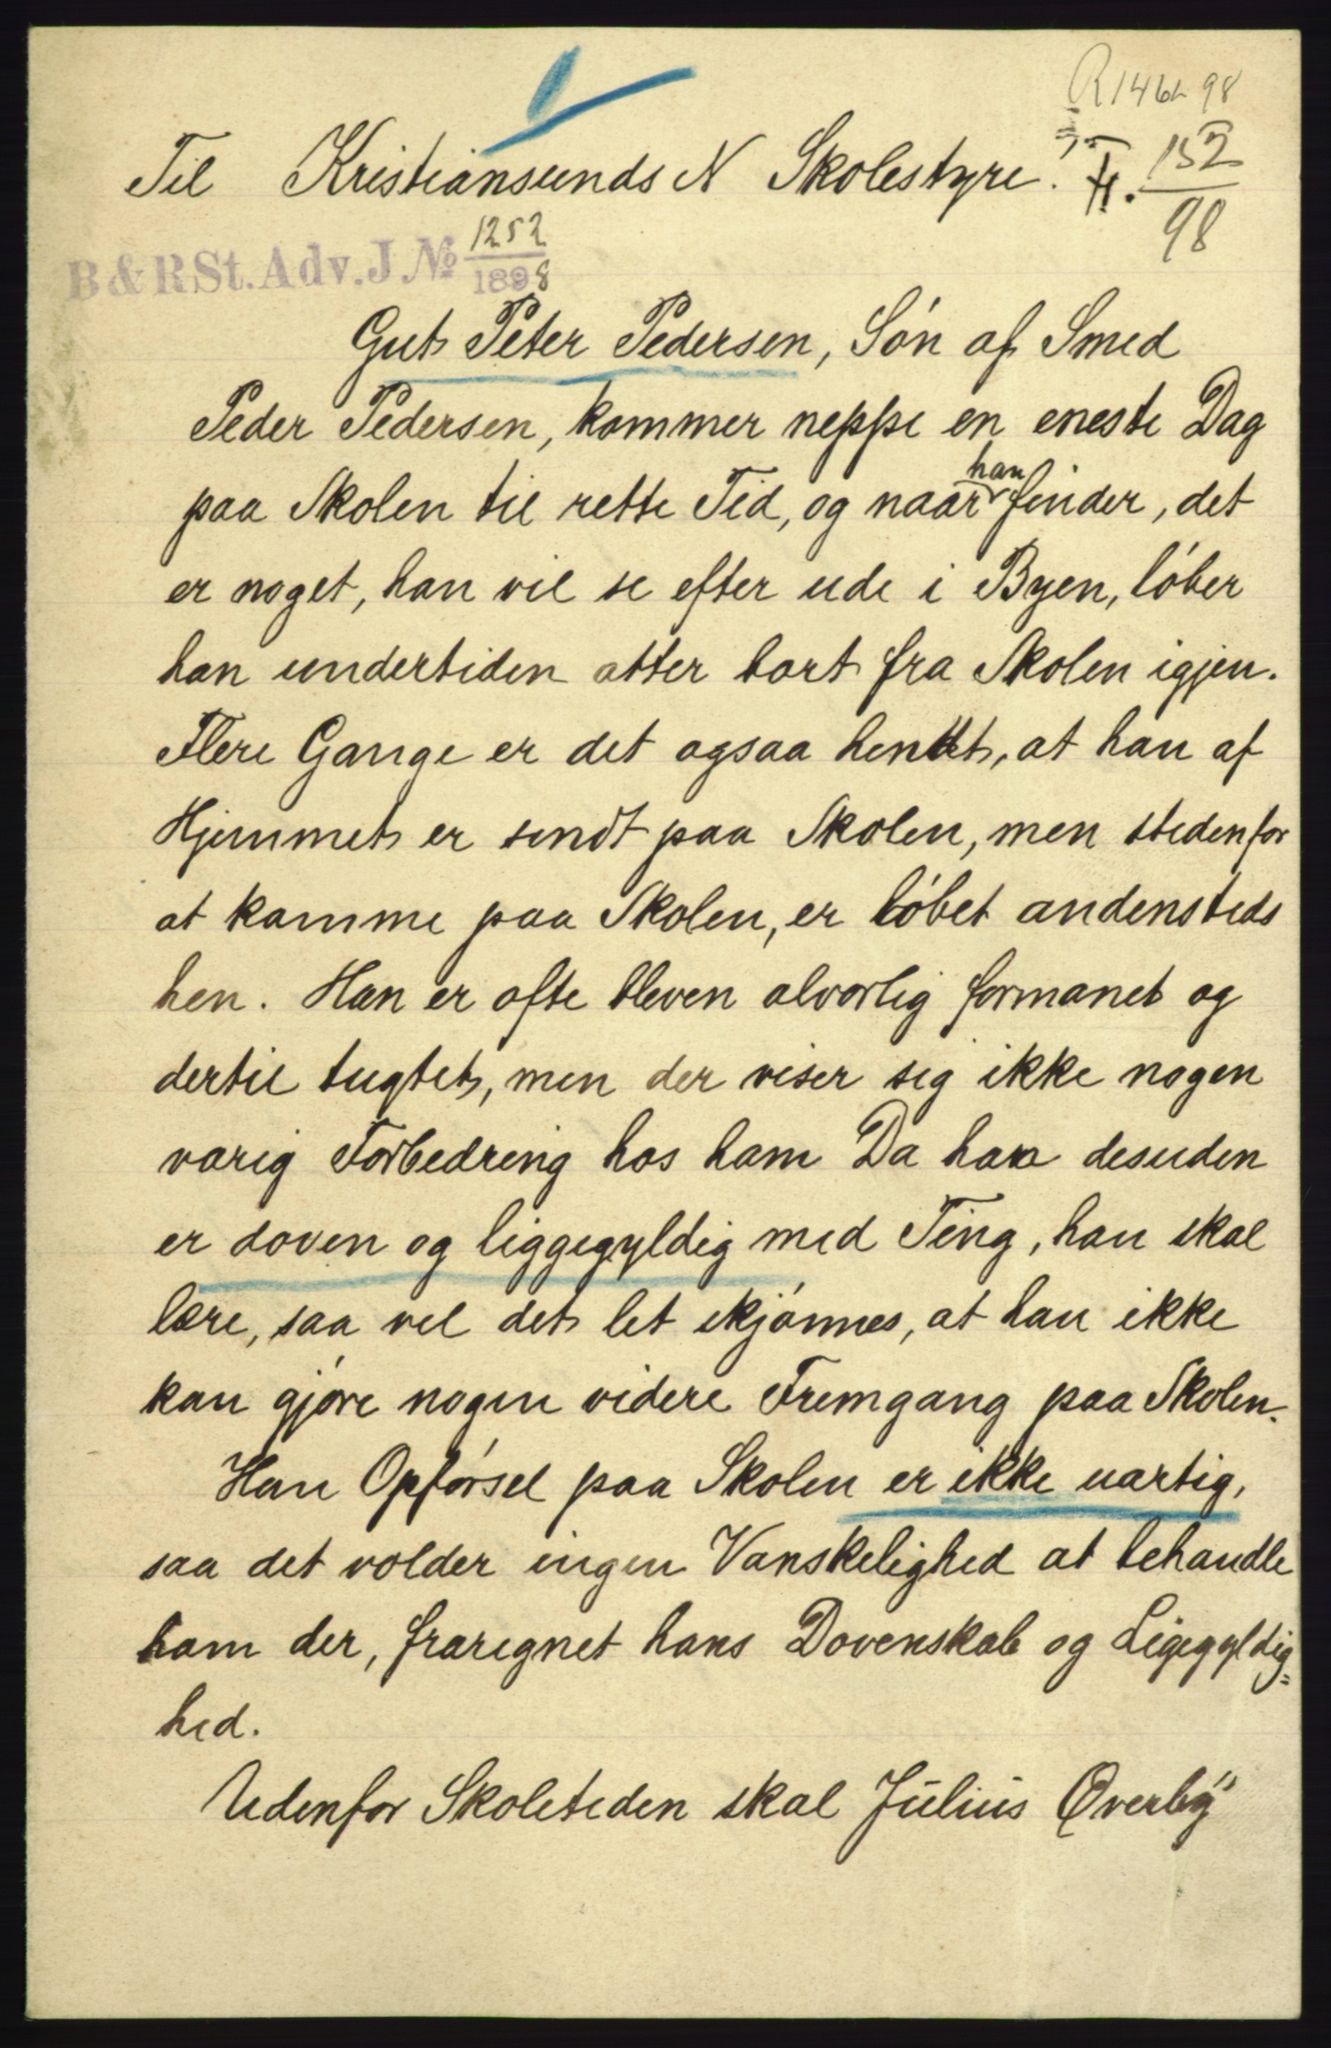 R 1462 98
Til Kristiansunds N Skolestyre.
152
98
B & R St. Adv. J. № 1252
1898
Gut Peter Pedersen, Søn af Smed
Peder Pedersen, kommer neppe en eneste Dag
paa Skolen til rette Tid, og naar han finder, det
er noget, han vil se efter ude i Byen, løber
han undertiden atter bort fra Skolen igjen.
Flere Gange er det ogsaa hendt, at han af
Hjemmet er sendt paa Skolen, men stedenfor
at komme paa Skolen, er løbet andensteds
hen. Han er ofte bleven alvorlig formanet og
dertil tugtet, men der viser sig ikke nogen
varig Forbedring hos ham Da han desuden
er doven og liggegyldig med Ting, han skal
lære, saa vil det let skjønnes, at han ikke
kan gjøre nogen videre Fremgang paa Skolen.
Han Opførsel paa Skolen er ikke uartig,
saa det volder ingen Vanskelighed at behandle
ham der, fraregnet hans Dovenskab og Ligegyldig=
hed.
Udenfor Skoletiden skal Julius Øverby